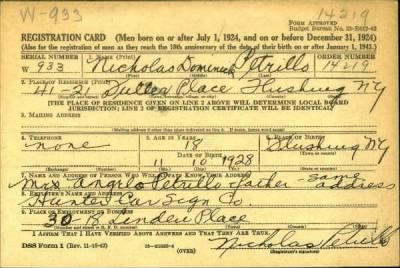 W-933 14219
FORM APPROVED
REGISTRATION CARD (Men born on or after July 1, 1924, and on or before December 31, 1924)
(Also for the registration of men as they reach the 18th anniversary of the date of their birth on or after January 1, 1943.)
SERIAL NUMBER 1. NAME (Print) ORDER NUMBER
W 933 Nicholas Dominick Petrillo 14219
2. PLACE OF RESIDENCE (Print)
41-21 Place Flushing NY
[THE PLACE OF RESIDENCE GIVEN ON LINE 2 ABOVE WILL DETERMINE LOCAL BOARD
JURISDICTION; LINE 2 OF REGISTRATION CERTIFICATE WILL BE IDENTICAL]
3. MAILING ADDRESS
4. TELEPHONE 5. AGE IN YEARS 6. PLACE OF BIRTH
none 18 Flushing NY
DATE OF BIRTH
11 10 1928
7. NAME AND ADDRESS OF PERSON WHO WILL ALWAYS KNOW YOUR ADDRESS
Mr. Angelo Petrillo father - same address
8. EMPLOYER'S NAME AND ADDRESS
Hunter Car Sign Co.
9. PLACE OF EMPLOYMENT OR BUSINESS
30 18 Linden Place
I AFFIRM THAT I HAVE VERIFIED ABOVE ANSWERS AND THAT THEY ARE TRUE.
DSS Form 1 (Rev. 11-16-42) (OVER) Nicholas Petrillo
(Registrant's signature)